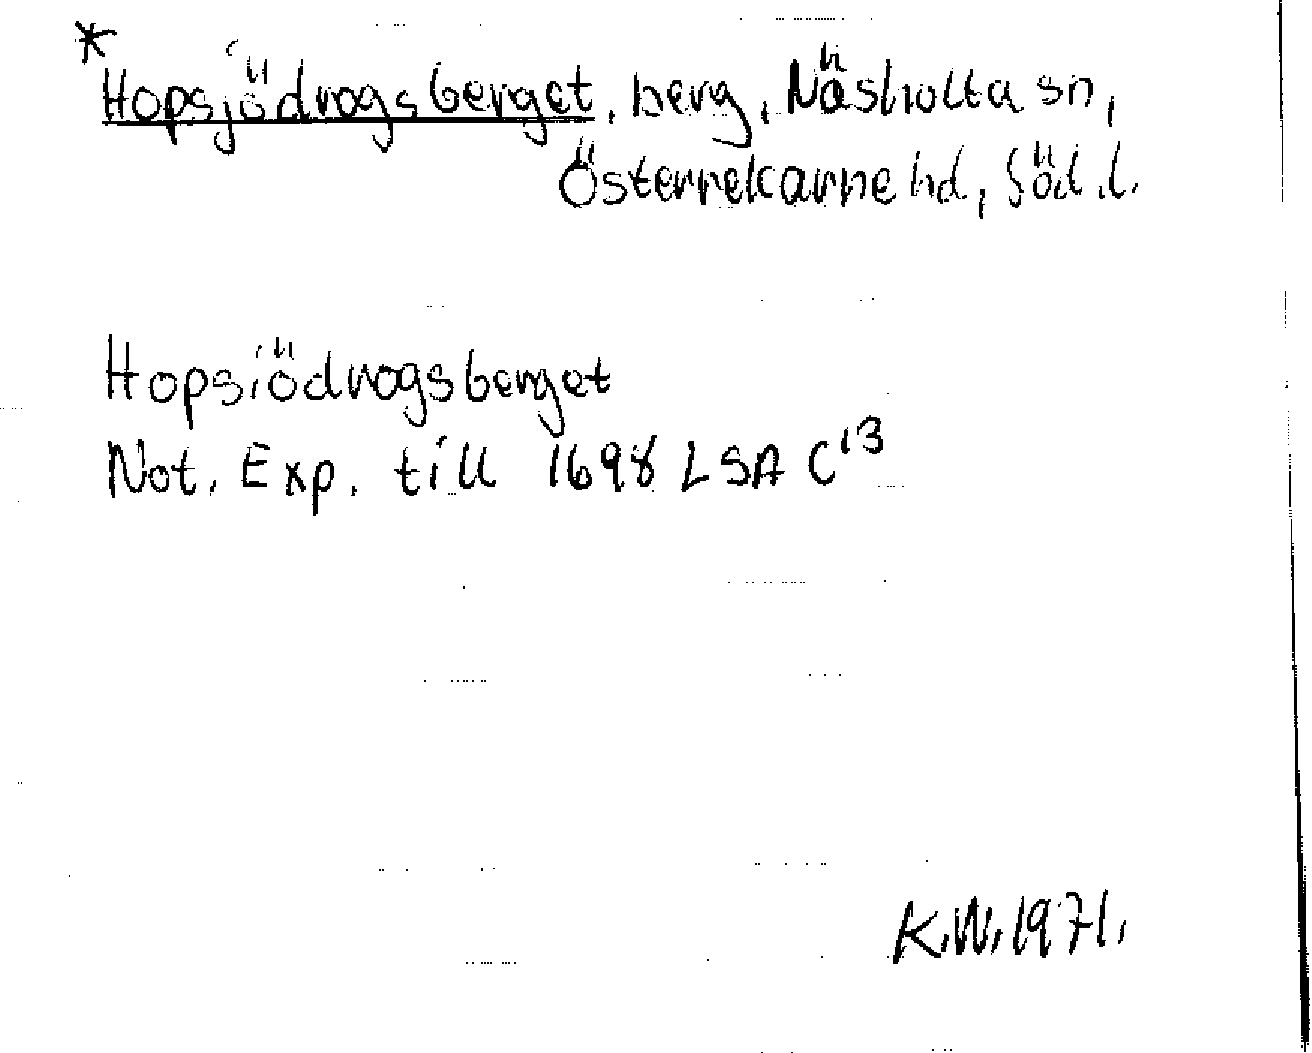 *
Hopsjödrogsberget, berg, Näshulta sn,
Österrekarne hd, Söd.l.
Hopsiödrogsberget
Not. Exp. till 1698 LSA C¹3
K.W. 1971.